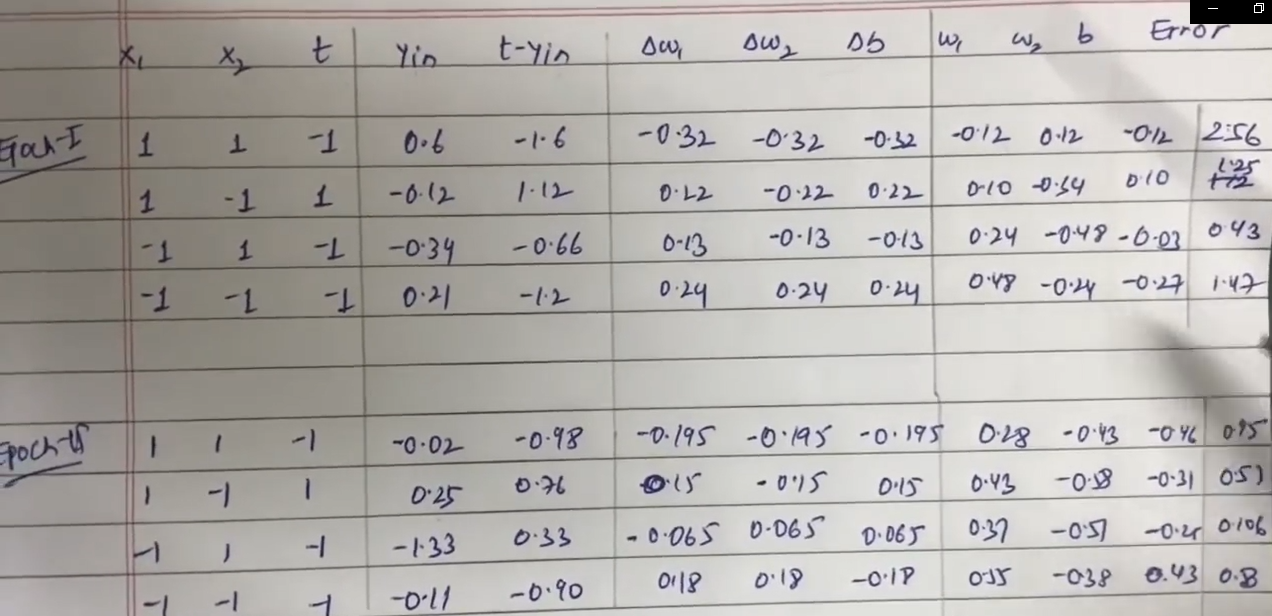 x₁ x₂ t yin t-yin Δw₁ Δw₂ Δb w₁ w₂ b Error
Epoch-I 1 1 -1 0.6 -1.6 -0.32 -0.32 -0.32 -0.12 0.12 -0.12 2.56
1 -1 1 -0.12 1.12 0.22 -0.22 0.22 0.10 -0.34 0.10 1.25
-1 1 -1 -0.34 -0.66 0.13 -0.13 -0.13 0.24 -0.48 -0.03 0.43
-1 -1 -1 0.21 -1.2 0.24 0.24 0.24 0.48 -0.24 -0.27 1.47
Epoch-II 1 1 -1 -0.02 -0.98 -0.195 -0.195 -0.195 0.28 -0.43 -0.46 0.95
1 -1 1 0.25 0.76 0.15 -0.15 0.15 0.43 -0.58 -0.31 0.57
-1 1 -1 -1.33 0.33 -0.065 0.065 0.065 0.37 -0.51 -0.25 0.106
-1 -1 -1 -0.11 -0.90 0.18 0.18 -0.18 0.55 -0.38 0.43 0.8